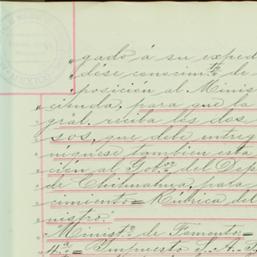 gado á su exped
dése conocimto. de
posición al Minis
cienda, para que la
gral. reciba los dos
sos, que debe entreg
níquese tambien esta
ción al Gobr. del Dep
de Chihuahua, para
cimiento = Rúbrica del
nistro.
Ministo. de Fomento =
4a. = Impuesto S. A. S.